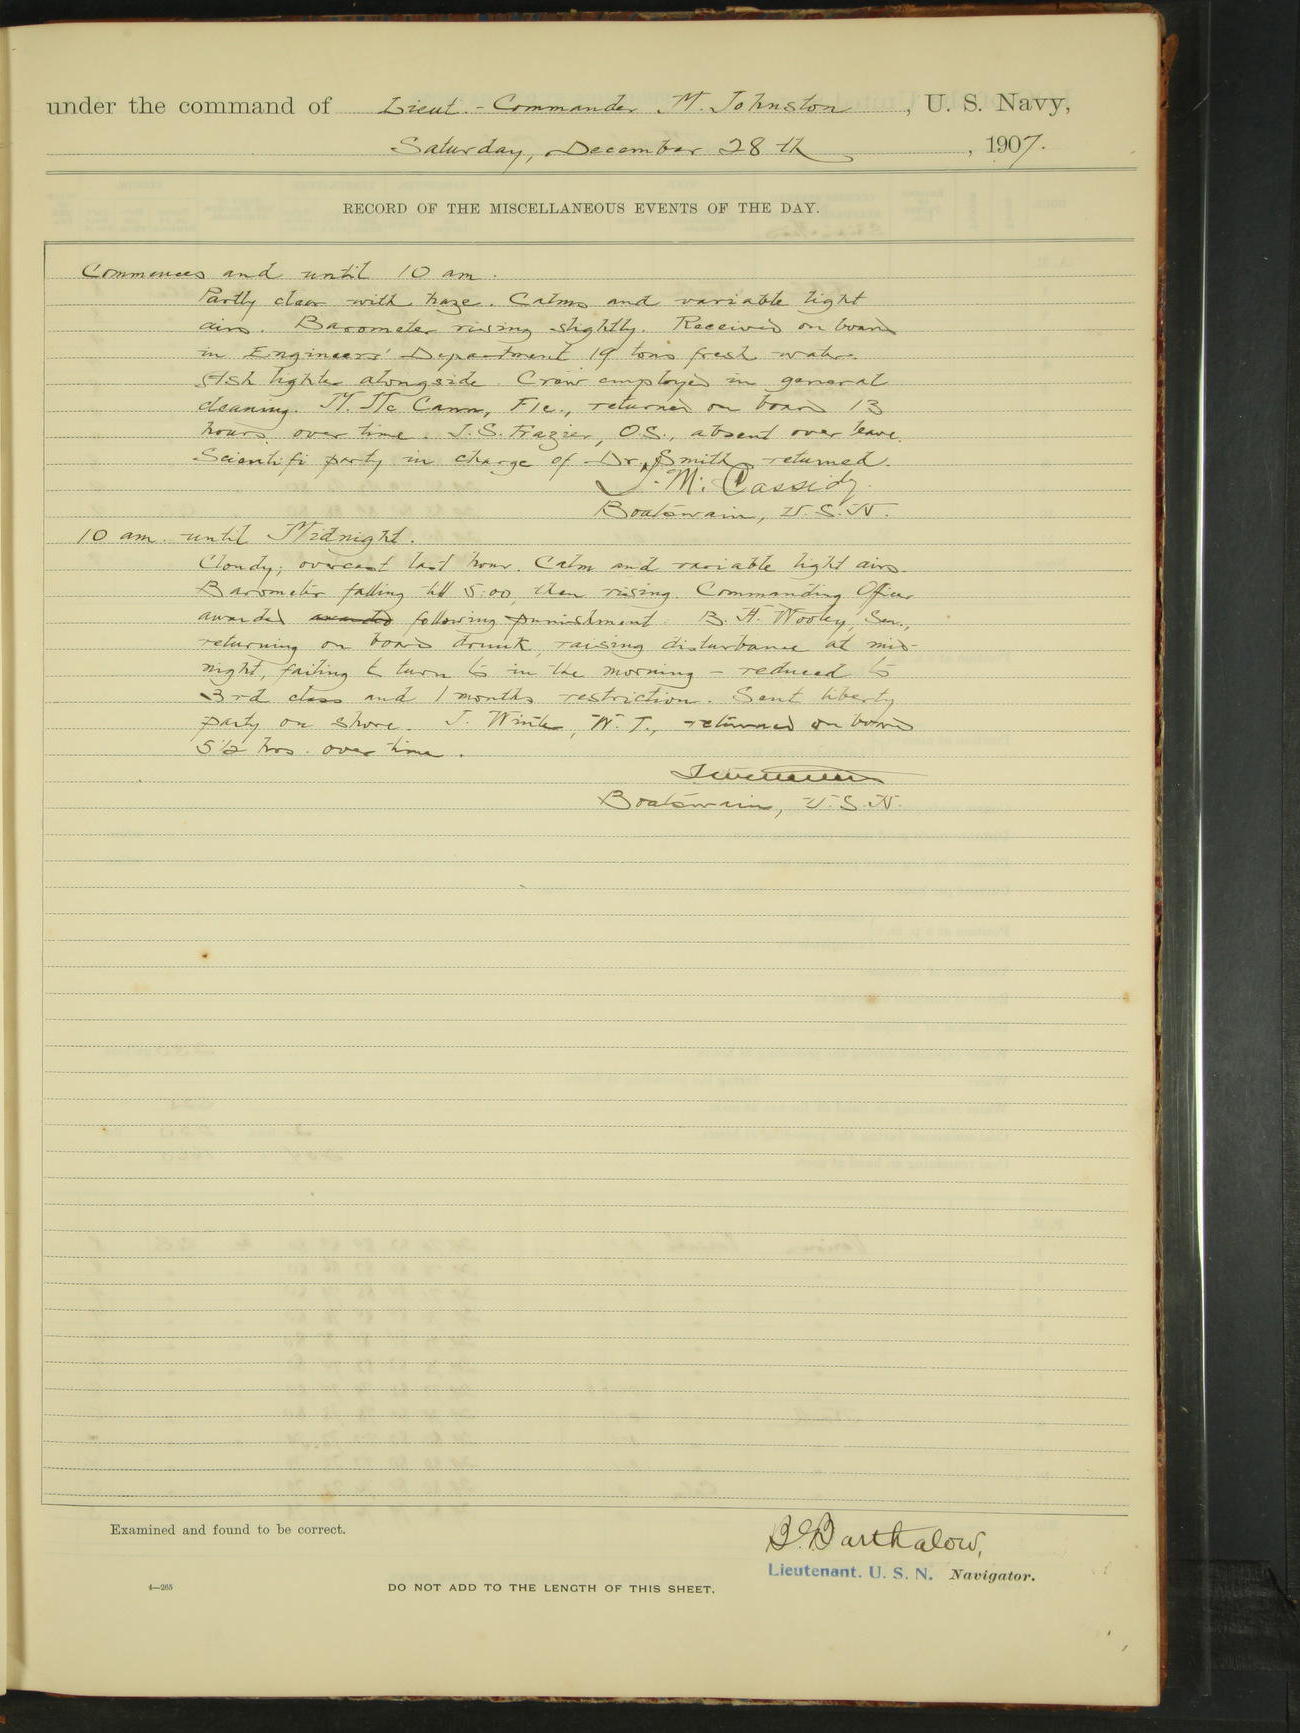 under the command of Lieut.-Commander M. Johnston, U. S. Navy,
Saturday, December 28th, 1907.
RECORD OF THE MISCELLANEOUS EVENTS OF THE DAY.
Commences and until 10 am.
Partly clear with haze. Calms and variable light
airs. Barometer rising slightly. Received on board
in Engineers' Department 19 tons fresh water.
Ash lighter alongside. Crew employed in general
cleaning. M. Mc Cann, F1c., returned on board 13
hours over time. J. S. Frazier, O.S., absent over leave.
Scientifi party in charge of Dr. Smith returned.
J. M. Cassidy.
Boatswain, U.S.N.
10 am until Midnight.
Cloudy; overcast last hour. Calm and variable light airs.
Barometer falling till 5:00, then rising. Commanding Officer
awarded awarded following punishment. B. H. Wooley, Sea.,
returning on board drunk, raising disturbance at mid-
night, failing to turn to in the morning - reduced to
3rd class and 1 months restriction. Sent liberty
party on shore. J. Winter, W.T., returned on board
5½ hrs. over time.
Boatswain, U.S.N.
Examined and found to be correct.
B. G. Barthalow,
Lieutenant. U. S. N. Navigator.
4—265
DO NOT ADD TO THE LENGTH OF THIS SHEET.